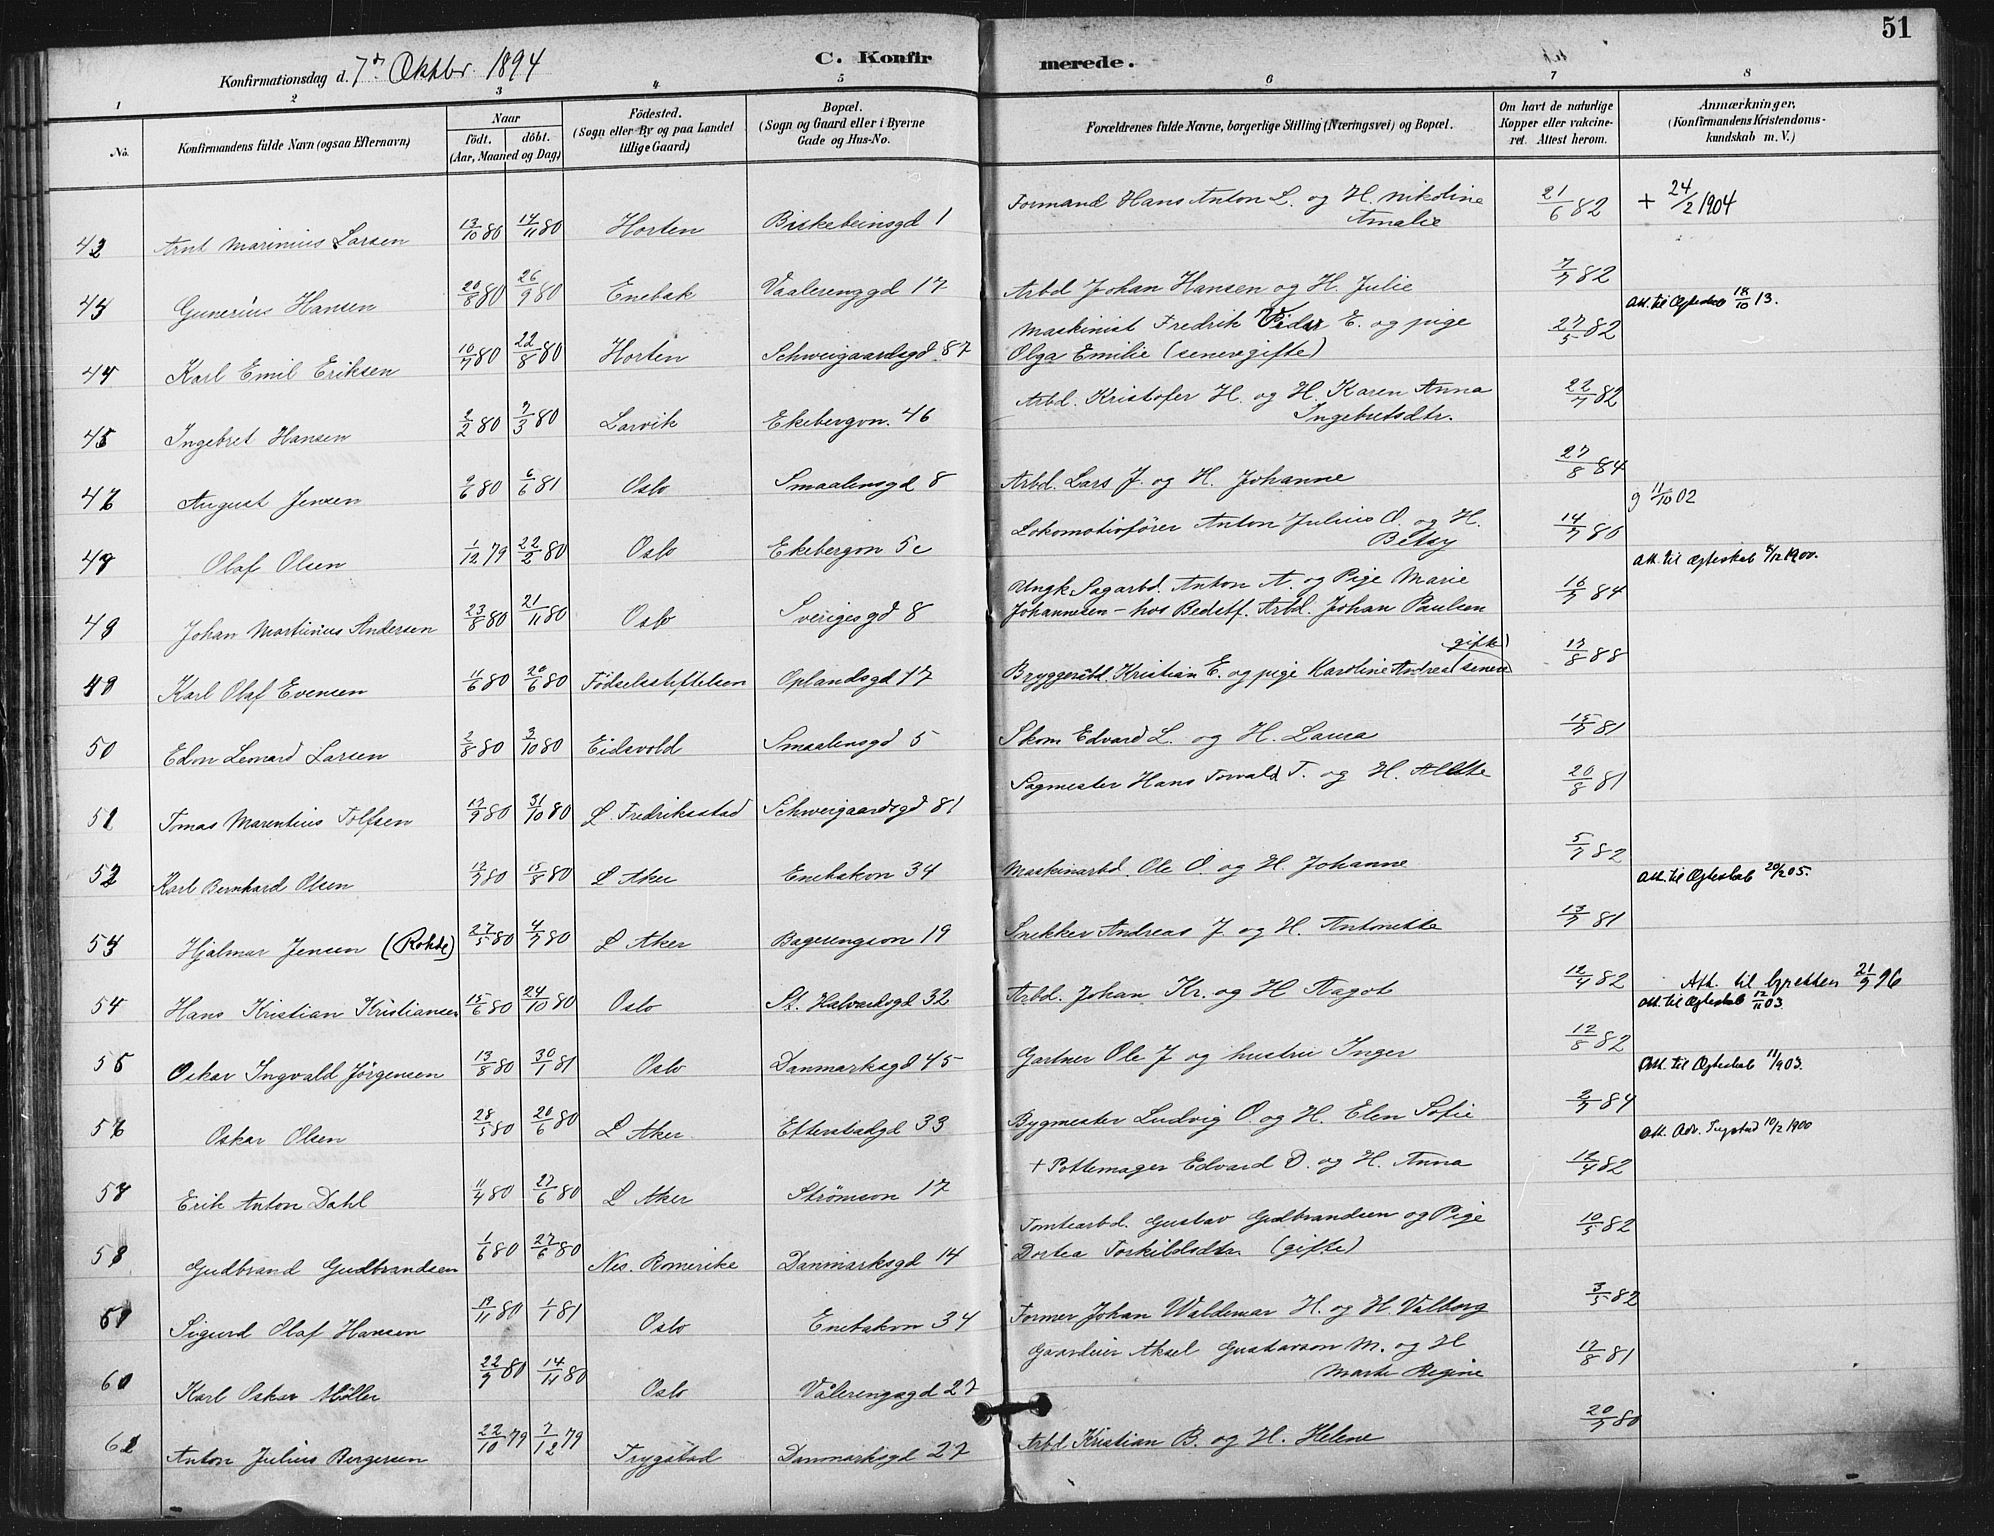 51
Konfirmationsdag d. 7de Oktbr. 1894
C. Konfirmerede.
1 2 3 4 5 6 7 8
No.
Konfirmandens fulde Navn (ogsaa Efternavn)
Naar
födt. döbt.
(Aar, Maaned og Dag)
Födested.
(Sogn eller By og paa Landet
tillige Gaard)
Bopæl.
(Sogn og Gaard eller i Byerne
Gade og Hus-No.
Forældrenes fulde Navne, borgerlige Stilling (Næringsvei) og Bopæl.
Om havt de naturlige
Kopper eller vakcine-
ret. Attest herom.
Anmærkninger.
(Konfirmandens Kristendoms-
kundskab m. V.)
Arnt Marinius Larsen 13/10 80 14/11 80 Horten Birkebeinsgd 1 Formand Hans Anton L. og H. Nikoline Amalie 21/6 82 + 24/2 1904
Gunerius Hansen 20/8 80 26/9 80 Enebak Vaalerenggd 17 Arbd Johan Hansen og H. Julie 7/7 82 Att. til Ægteskab 18/10 13.
Karl Emil Eriksen 10/7 80 22/8 80 Horten Schweigaardsgd. 87 Maskinist Fredrik E. og pige
Olga Emilie (senere gifte) 27/5 82
45 Ingebret Hansen 2/2 80 7/3 80 Larvik Ekebergvn. 46 Arbd. Kristofer H. og H. Karen Anna
Ingebretsdtr. 22/7 82
August Jensen 9/6 80 6/6 81 Oslo Smaalensgd 8 Arbd. Lars J. og H. Johanne 27/8 84 g 11/10 02
Olaf Olsen 1/12 79 22/2 80 Oslo Ekebergvn 5c Lokomotivfører Anton Julius O. og H.
Betsy 14/7 80 Att. til Ægteskab 8/12 1900.
Johan Martinius Andersen 23/8 80 21/11 80 Oslo Sverigesgd 8 Ungk Sagarbd. Anton A. og Pige Marie
Johannesen - hos Bedstf. Arbd. Johan Paulsen 16/7 84
49 Karl Olaf Evensen 11/6 80 20/6 80 Fødselsstiftelsen Oplandsgd 17 Bryggeriarbd. Kristian E. og pige Karoline Andrea (senere
gifte) 17/8 88
50 Edvn Leonard Larsen 2/8 80 3/10 80 Eidsvold Smaalensgd 5 Skom Edvard L. og H. Laura 15/7 81
51 Tomas Marentius Tolfsen 17/9 80 31/10 80 L Fredriksstad Schweigaardsgd 81 Sagmester Hans Torvald T. og H. 20/8 81
52 Karl Bernhard Olsen 13/7 80 15/8 80 L Aker Enebakvn 34 Maskinarbd. Ole O. og H. Johanne 5/7 82 Att. til Ægteskab 20/2 05.
Hjalmar Jensen (Rohde) 27/5 80 4/7 80 L Aker 19 Snekker Andreas J. og H. Antonette 13/7 81
54 Hans Kristian Kristiansen 15/6 80 24/10 80 Oslo St. Halvardsgd 32 Arbd. Johan Kr. og H Aagot 12/7 82 Att. til 21/9 96
Att. til Ægteskab 12/11 03
55 Oskar Ingvald Jørgensen 13/8 80 30/1 81 Oslo Danmarksgd 45 Gartner Ole J og hustru Inger 12/8 82 Att. til Ægteskab 11/9 03.
56 Oskar Olsen 28/5 80 20/6 80 L Aker. Etterstadgd 33 Bygmester Ludvig O. og H. Elen Sofie 2/7 84 Att. 10/2 1900
57 Erik Anton Dahl 11/4 80 27/6 80 L Aker Strømsvn 17 + Pottemager Edvard D. og H. Anna 12/4 82
58 Gudbrand Gudbrandsen 1/6 80 27/6 80 Nes. Romerike Danmarksgd 14 Tomtearbd. Gustav Gudbrandsen og Pige
Dortea Torkildsdtr (gifte) 10/5 82
Sigurd Olaf Hansen 19/11 80 1/1 81 Oslo Enebakvn 34 Former Johan Waldemar H. og H. Valborg 3/5 82
60 Karl Oskar Møller 22/9 80 14/11 80 Oslo Vålerengagd 27 Gaardeier Aksel Gustavson M. og H
Marte Regine 17/8 81
Anton Julius Bergersen 22/10 79 7/12 79 Trygstad Danmarksgd 27 Arbd Kristian B. og H. Helene 20/7 80